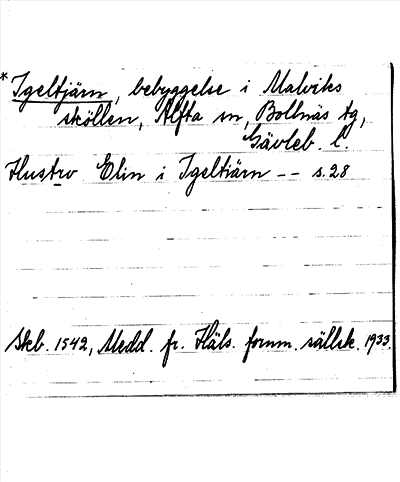 * Igeltjärn, bebyggelse i Malviks
sköllen, Alfta sn, Bollnäs tg,
Gävleb. l.
Hustro Elin i Igeltiärn -- s. 28
Skb. 1542, Medd. fr. Häls. fornm. sällsk. 1933.